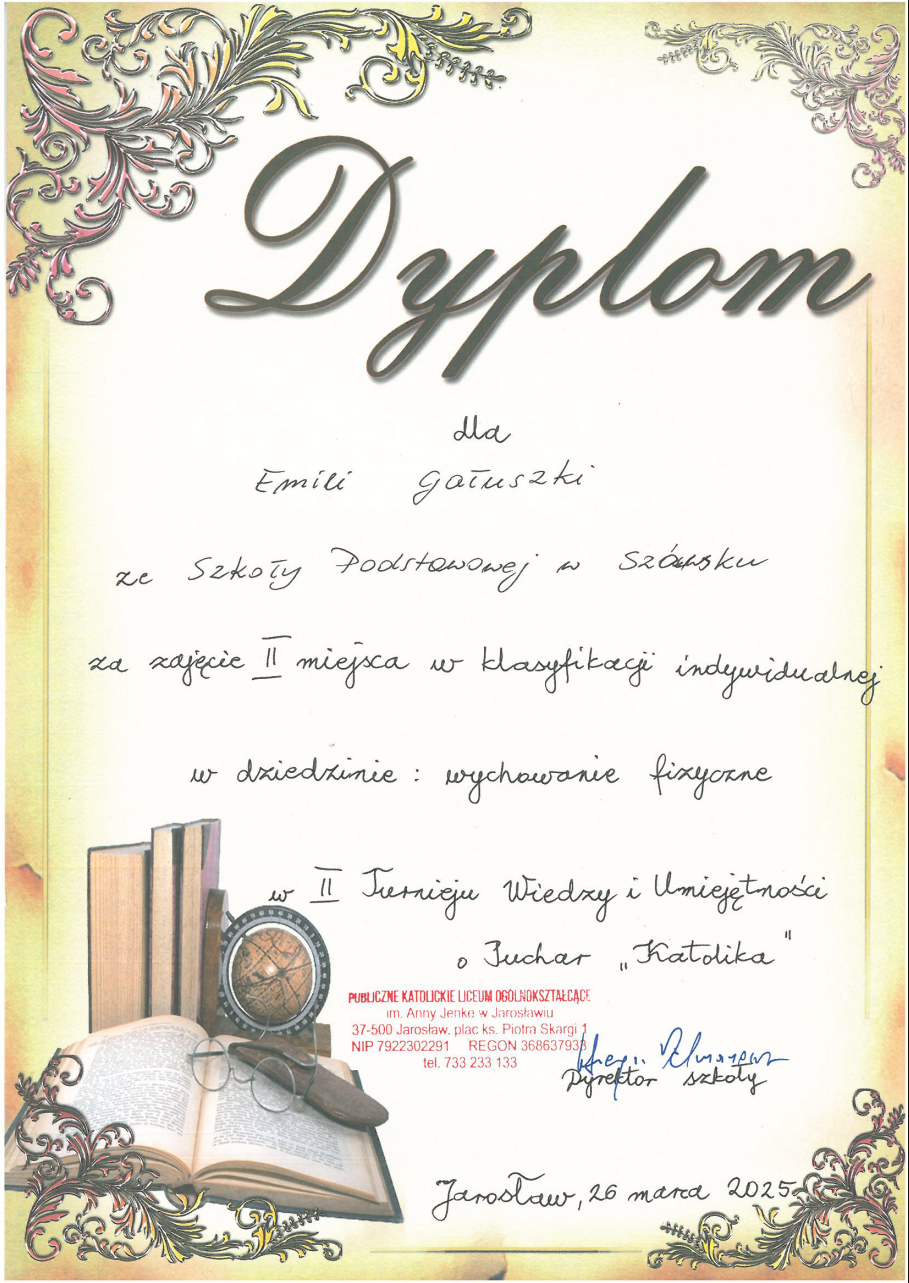 Dyplom
dla
Emilii Gałuszki
ze Szkoły Podstawowej w Szówsku
za zajęcie II miejsca w klasyfikacji indywidualnej
w dziedzinie: wychowanie fizyczne
w II Turnieju Wiedzy i Umiejętności
o Puchar „Katolika"
PUBLICZNE KATOLICKIE LICEUM OGÓLNOKSZTAŁCĄCE
im. Anny Jenke w Jarosławiu
37-500 Jarosław, plac ks. Piotra Skargi 1
NIP 7922302291 REGON 368637933
tel. 733 233 133
Dyrektor szkoły
Jarosław, 26 marca 2025